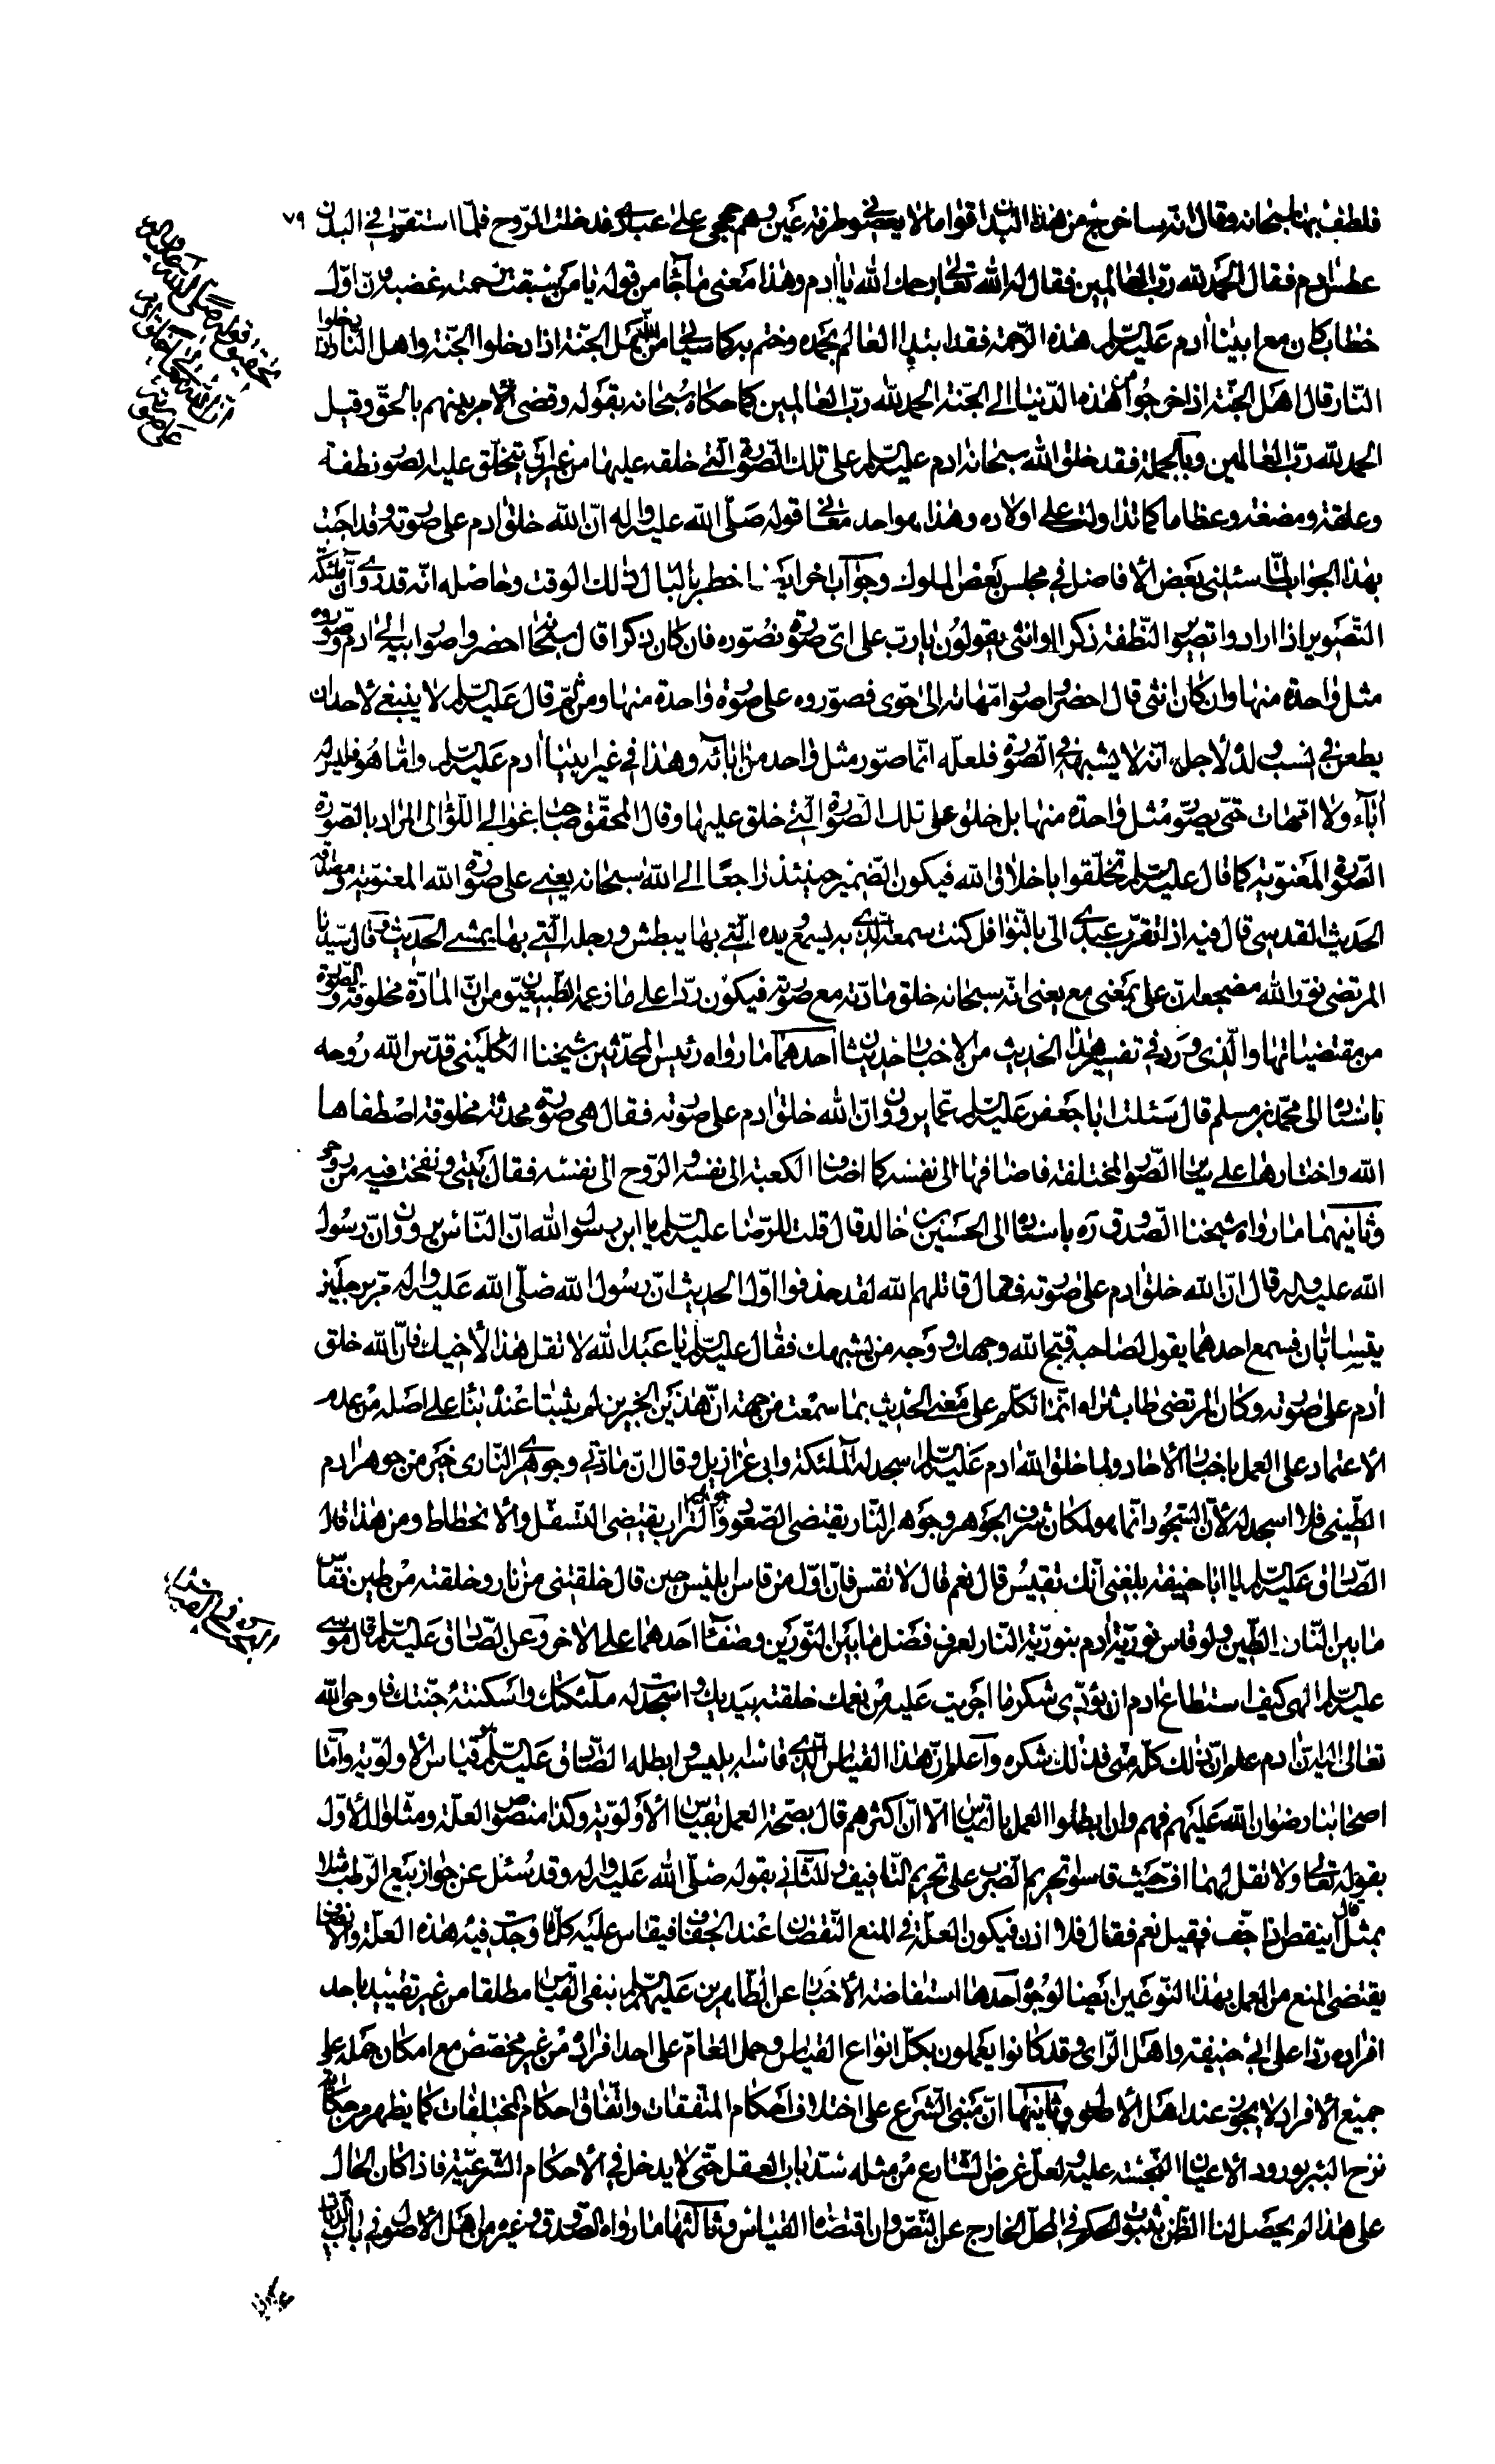 ٧٩
فلطف بها سبحانه وقال انّه ساخرج من هذا البدن اقواما لا يعصوني طرفة عين وهم حججي على عبادي فدخلت الرّوح فلمّا استقرّت في البدن
عطس ادم فقال الحمد لله ربّ العالمين فقال له الله تعالى رحمك الله يا ادم وهذا معنى ما جآء من قوله يا من سبقت رحمته غضبه لانّ اوّل
خطاب كان مع ابينا ادم عليه السّلم هذه الرّحمة فقد ابتدا العالم بحمده وختم به كما سيجئ من انّ اهل الجنّة اذا دخلوا الجنّة واهل النّار اذا دخلوا
النّار قال اهل الجنّة اذا خرجوا من هذه الدّنيا الى الجنّة الحمد لله ربّ العالمين كما حكاه سبحانه بقوله وقضى الامر بينهم بالحقّ وقيل
الحمد لله ربّ العالمين وبالجملة فقد خلق الله سبحانه ادم عليه السّلم على تلك الصّورة الّتي خلقه عليها من غير ان يتخالق عليه صور نطفة
وعلقة ومضغة وعظاما كما تداولت على اولاده وهذا هو احد معاني قوله صلّى الله عليه واله انّ الله خلق ادم على صورته وقد اجبت
بهذا الجواب لمّا سئلني بعض الافاضل في مجلس بعض الملوك وجواب اخر ايضا خطر بالبال ذلك الوقت وحاصله انّه قد روي انّ ملئكة
التّصوير اذا ارادوا تصوير النّطفة ذكرا او انثى يقولون يا ربّ على اىّ صورة نصوّره فان كان ذكرا قال سبحانه احضروا صور ابيه الى ادم وصوّروه
مثل واحدة منها وان كان انثى قال احضروا صور امّهاته الى حوّى فصوّروه على صورة واحدة منها ومن ثمّ قال عليه السّلم لا ينبغي لاحد ان
يطعن في نسب ولده لاجل انّه لا يشبهه في الصّورة فلعلّه انّما صوّر مثل واحد من ابائه وهذا في غير ابينا ادم عليه السّلم وامّا هو فليس له
ابآء ولا امّهات حتّى يصوّر مثل واحدة منها بل خلق على تلك الصّورة الّتي خلق عليها وقال المحقّق صاحب غوالي اللّؤالى المراد بالصّورة
الصّورة المعنويّة كما قال عليه السّلم تخلّقوا باخلاق الله فيكون الضّمير حينئذ راجعا الى الله سبحانه يعني على صورة الله المعنويّة ومصداقه
الحديث القدسي قال فيه اذا تقرّب عبدي الىّ بالنّوافل كنت سمعه الّذي به يسمع ويده الّتي بها يبطش ورجله الّتي بها يمشي الحديث وقال سيّدنا
المرتضى نوّر الله مضجعه انّ على بمعنى مع يعنى انّه سبحانه خلق مادّته مع صورته فيكون ردّا على ما زعمه الطّبيعيّون من انّ المادّة مخلوقة والصّورة
من مقتضياتها والّذي ورد في تفسير هذا الحديث من الاخبار حديثان احدهما ما رواه رئيس المحدّثين شيخنا الكليني قدّس الله روحه
باسناده الى محمّد بن مسلم قال سئلت ابا جعفر عليه السّلم عمّا يروون انّ الله خلق ادم على صورته فقال هي صورة محدثة مخلوقة اصطفاها
الله واختارها على سائر الصّور المختلفة فاضافها الى نفسه كما اضاف الكعبة الى نفسه والرّوح الى نفسه فقال بيتي ونفخت فيه من روحي
وثانيهما ما رواه شيخنا الصّدوق ره باسناده الى الحسين بن خالد قال قلت للرّضا عليه السّلم يا ابن رسول الله انّ النّاس يروون انّ رسول
الله عليه واله قال انّ الله خلق ادم على صورته فقال قاتلهم الله لقد حذفوا اوّل الحديث انّ رسول الله صلّى الله عليه واله مرّ برجلين
يتسابّان فسمع احدهما يقول لصاحبه قبّح الله وجهك ووجه من يشبهك فقال عليه السّلم يا عبد الله لا تقل هذا لاخيك فانّ الله خلق
ادم على صورته وكان المرتضى طاب ثراه انّما تكلّم على معنى الحديث بما سمعت من جهة انّ هذين الخبرين لم يثبتا عنده بنآء على اصله من عدم
الاعتماد على العمل باخبار الاحاد ولما خلق الله ادم عليه السّلم اسجد له الملئكة وابى عزازيل وقال انّ مادّتي وجوهري النّاري خير من جوهر ادم
الطّيني فلا اسجد له لانّ السّجود انّما هو لمكان شرف الجوهر وجوهر النّار يقتضي الصّعود وجوهر التّراب يقتضي التّسفّل والانحطاط ومن هذا قال
الصّادق عليه السّلم يا ابا حنيفة بلغني انّك تقيس قال نعم قال لا تقس فانّ اوّل من قاس ابليس حين قال خلقتني من نار وخلقته من طين فقاس
ما بين النّار والطّين ولو قاس نوريّة ادم بنوريّة النّار لعرف فضل ما بين النّورين وصفآء احدهما على الاخر وعن الصّادق عليه السّلم قال موسى
عليه السّلم الهي كيف استطاع ادم ان يؤدّي شكر ما اجريت عليه من نعمك خلقته بيديك واسجدت له ملئكتك واسكنته جنّتك فاوحى الله
تعالى اليه انّ ادم علم انّ ذلك كلّه منّي فذلك شكره واعلم انّ هذا القياس الّذي قاسه ابليس وابطله الصّادق عليه السّلم هو قياس الاولويّة وامّا
اصحابنا رضوان الله عليهم فهم وان ابطلوا العمل بالقياس الّا انّ اكثرهم قال بصحّة العمل بقياس الاولويّة وكذا منصوص العلّة ومثّلوا للاوّل
بقوله تعالى ولا تقل لهما افّ حيث قاسوا تحريم الضّرب على تحريم التّافيف وللثّاني بقوله صلّى الله عليه واله وقد سئل عن جواز بيع الرّطب مثلا
بمثل قال اينقص اذا جفّ فقيل نعم فقال فلا اذن فيكون العلّة في المنع النّقصان عند الجفاف فيقاس عليه كلّما وجدت فيه هذه العلّة والانصاف
يقتضي المنع من العمل بهذا النّوعين ايضا لوجوه احدها استفاضة الاخبار عن الطّاهرين عليهم السّلم بنفى القياس مطلقا من غير تقييد باحد
افراده ردّا على ابي حنيفة واهل الرّاى وقد كانوا يعملون بكلّ انواع القياس وحمل العامّ على احد افراده من غير مخصّص مع امكان حمله على
جميع الافراد لا يجوز عند اهل الاصول وثانيها انّ مبنى الشّرع على اختلاف احكام المتّفقات واتّفاق احكام المختلفات كما يظهر من احكام
نزح البئر بورود الاعيان النّجسة عليه ولعلّ غرض الشّارع من مثله سدّ باب العقل حتّى لا يدخل في الاحكام الشّرعيّة فاذا كان الحال
على هذا لم يحصل لنا الظّنّ بثبوت الحكم في المحلّ الخارج عن النّصّ وان اقتضاه القياس وثالثها ما رواه الصّدوق وغيره من اهل الاصول في باب